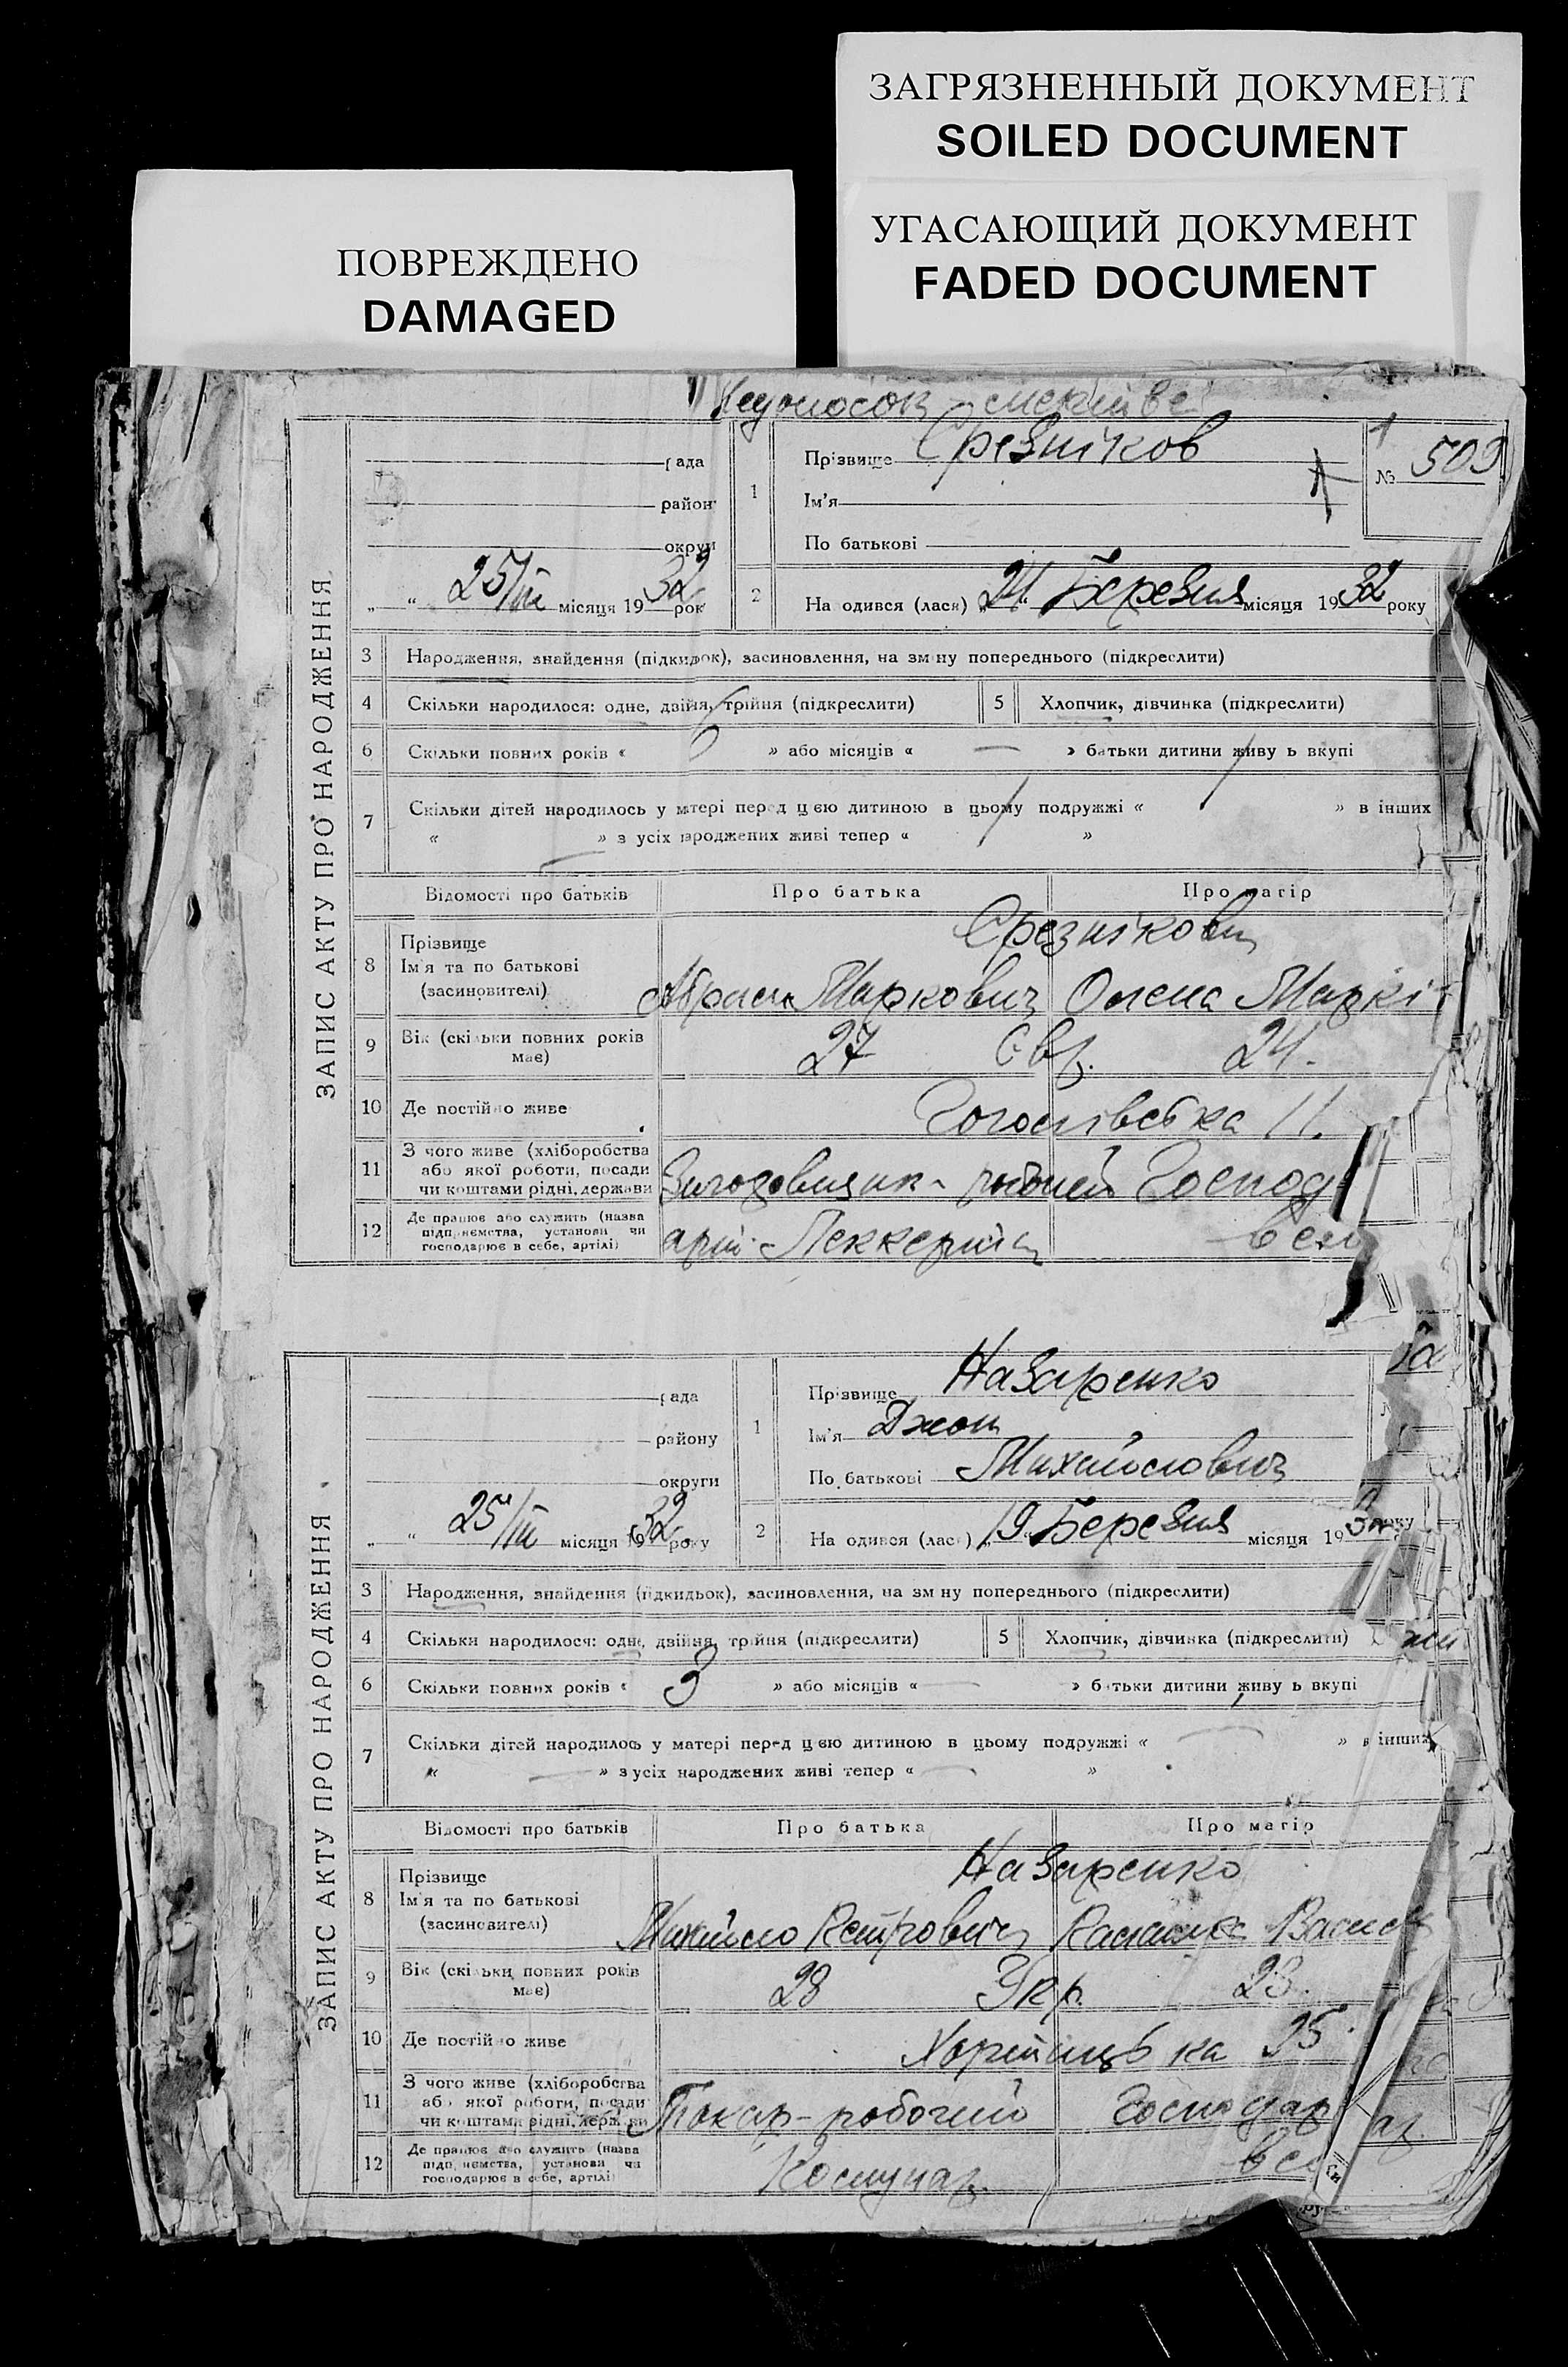 ЗАГРЯЗНЕННЫЙ ДОКУМЕНТ
SOILED DOCUMENT
УГАСАЮЩИЙ ДОКУМЕНТ
FADED DOCUMENT
ПОВРЕЖДЕНО
DAMAGED
Недоносок
ЗАПИС АКТУ ПРО НАРОДЖЕННЯ
рада
район
округи
25/III місяця 1932 рок
1
Прізвище Срезніков
Ім'я
По батькові
№ 509
2
На одився (лася) 24 Березня місяця 1932 року
3 Народження, знайдення (підкидьок), засиновлення, на зміну попереднього (підкреслити)
4 Скільки народилося: одне, двійня, трійня (підкреслити)
5 Хлопчик, дівчинка (підкреслити)
6 Скільки повних років « 6 » або місяців « — » батьки дитини живу ь вкупі
7 Скільки дітей народилось у матері перед цією дитиною в цьому подружжі « » в інших
« » з усіх народжених живі тепер « »
Відомості про батьків Про батька Про матір
8 Прізвище
Ім'я та по батькові
(засиновителі)
Срезнікови
Абрам Маркович Олена Маркі
9 Вік (скільки повних років має) 27 Євр. 24.
10 Де постійно живе Гоголівська 11.
11 З чого живе (хліборобства
або якої роботи, посади
чи коштами рідні, держави
робочий Господ
12 Де працює або служить (назва
підприємства, установи чи
господарює в себе, артілі)
ЗАПИС АКТУ ПРО НАРОДЖЕННЯ
рада
району
округи
„ “ 25/III місяця 1932 року
1
Прізвище Назаренко
Ім'я Джон
По батькові Михайлович
2
На одився (лася) „19“ Березня місяця 1932 року
3 Народження, знайдення (підкидьок), засиновлення, на зміну попереднього (підкреслити)
4 Скільки народилося: одне, двійня, трійня (підкреслити)
5 Хлопчик, дівчинка (підкреслити)
6 Скільки повних років « 3 » або місяців « — » батьки дитини живу ь вкупі
7 Скільки дітей народилось у матері перед цією дитиною в цьому подружжі « — » в інших
« — » з усіх народжених живі тепер « — »
Відомості про батьків Про батька Про матір
8 Прізвище
Ім'я та по батькові
(засиновителі)
Назаренко
Михайло Петрович
9 Вік (скільки повних років має) 28 Укр. 23.
10 Де постійно живе Хортицька 25
11 З чого живе (хліборобства
або якої роботи, посади
чи коштами рідні, держави
Токар-робочий Господар
12 Де працює або служить (назва
підприємства, установи чи
господарює в себе, артілі)
Комунар.